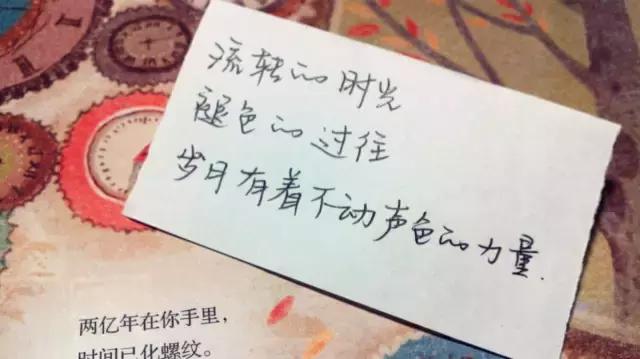 流转的时光
褪色的过往
岁月有着不动声色的力量.
两亿年在你手里，
时间已化螺纹。